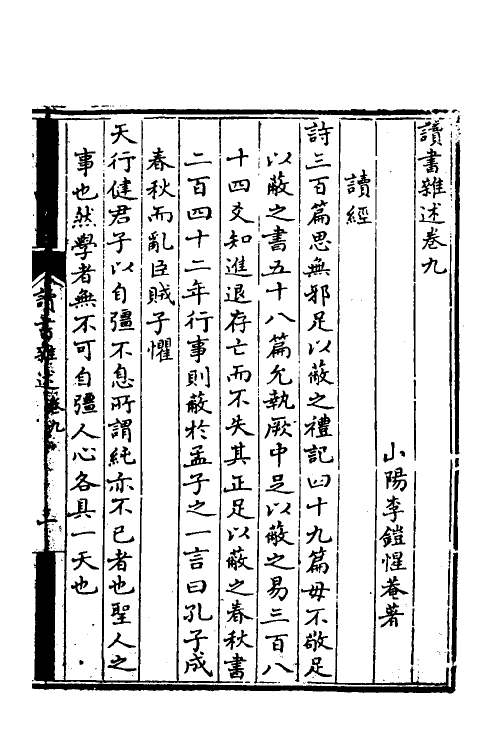 讀書雜述卷九
山陽李鎧惺菴著
讀經
詩三百篇思無邪足以蔽之禮記四十九篇毋不敬足
以蔽之書五十八篇允執厥中足以蔽之易三百八
十四爻知進退存亡而不失其正足以蔽之春秋書
二百四十二年行事則蔽於孟子之一言曰孔子成
春秋而亂臣賊子懼
天行健君子以自彊不息所謂純亦不已者也聖人之
事也然學者無不可自彊人心各具一天也
讀書雜述 卷九 一